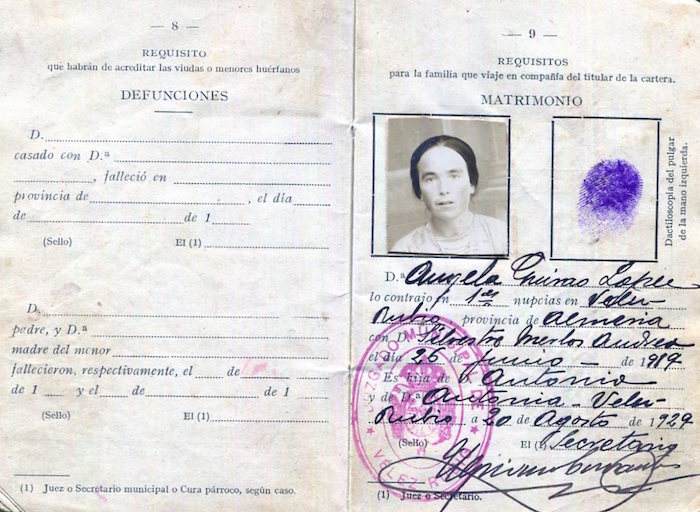 — 8 —
REQUISITO
que habrán de acreditar las viudas o menores huérfanos
DEFUNCIONES
D.
casado con D.ª
, falleció en
provincia de , el día
de de 1
(Sello) El (1)
D.
padre, y D.ª
madre del menor
fallecieron, respectivamente, el de
de 1 y el de de 1
(Sello) El (1)
(1) Juez o Secretario municipal o Cura párroco, según caso.
— 9 —
REQUISITOS
para la familia que viaje en compañía del titular de la cartera.
MATRIMONIO
Dactiloscopia del pulgar
de la mano izquierda.
D.ª Angela Lopez
lo contrajo en 1as nupcias en Velez
Rubio, provincia de Almeria
con D. Silvestre Merlos Andreo
el día 25 de junio de 1919
Es hija de D. Antonio
y de D.ª Antonia - Velez
Rubio a 20 de Agosto de 1929
(Sello) El (1) Secretario
JUZGADO MUNICIPAL
VELEZ RUBIO
(1) Juez o Secretario.